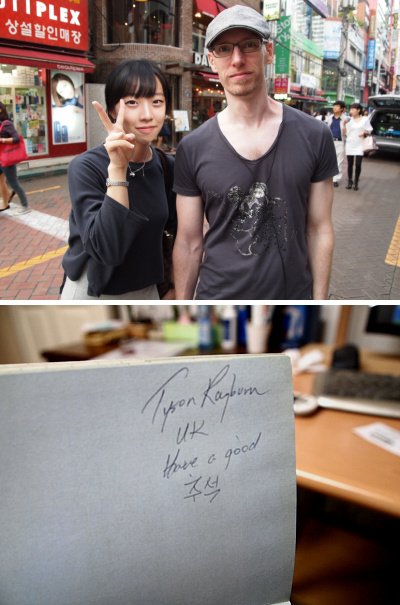 TIPLEX
상설할인매장
DA
Tyson Rayburn
UK
Have a good
추석